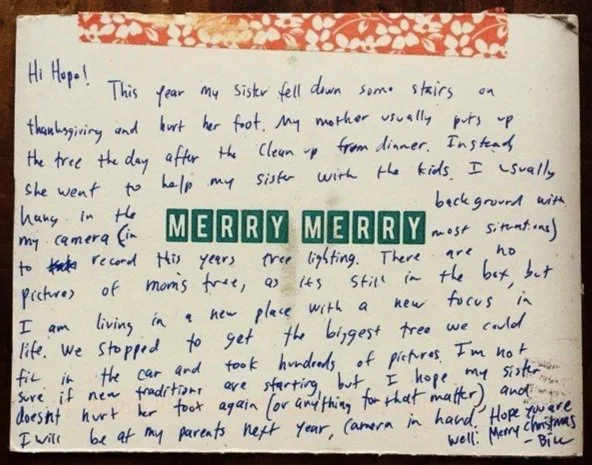 Hi Hope!
This year my sister fell down some stairs on
thanksgiving and hurt her foot. My mother usually puts up
the tree the day after the clean up from dinner. Instead
she went to help my sister with the kids. I usually
hang in the background with
MERRY MERRY
my camera (in most situations)
to record this years tree lighting. There are no
pictures of mom's tree, as its still in the box, but
I am living in a new place with a new focus in
life. We stopped to get the biggest tree we could
fit in the car and took hundreds of pictures. I'm not
sure if new traditions are starting, but I hope my sister
doesnt hurt her foot again (or anything for that matter) and
I will be at my parents next year, camera in hand. Hope you are
well! Merry Christmas
- Bill